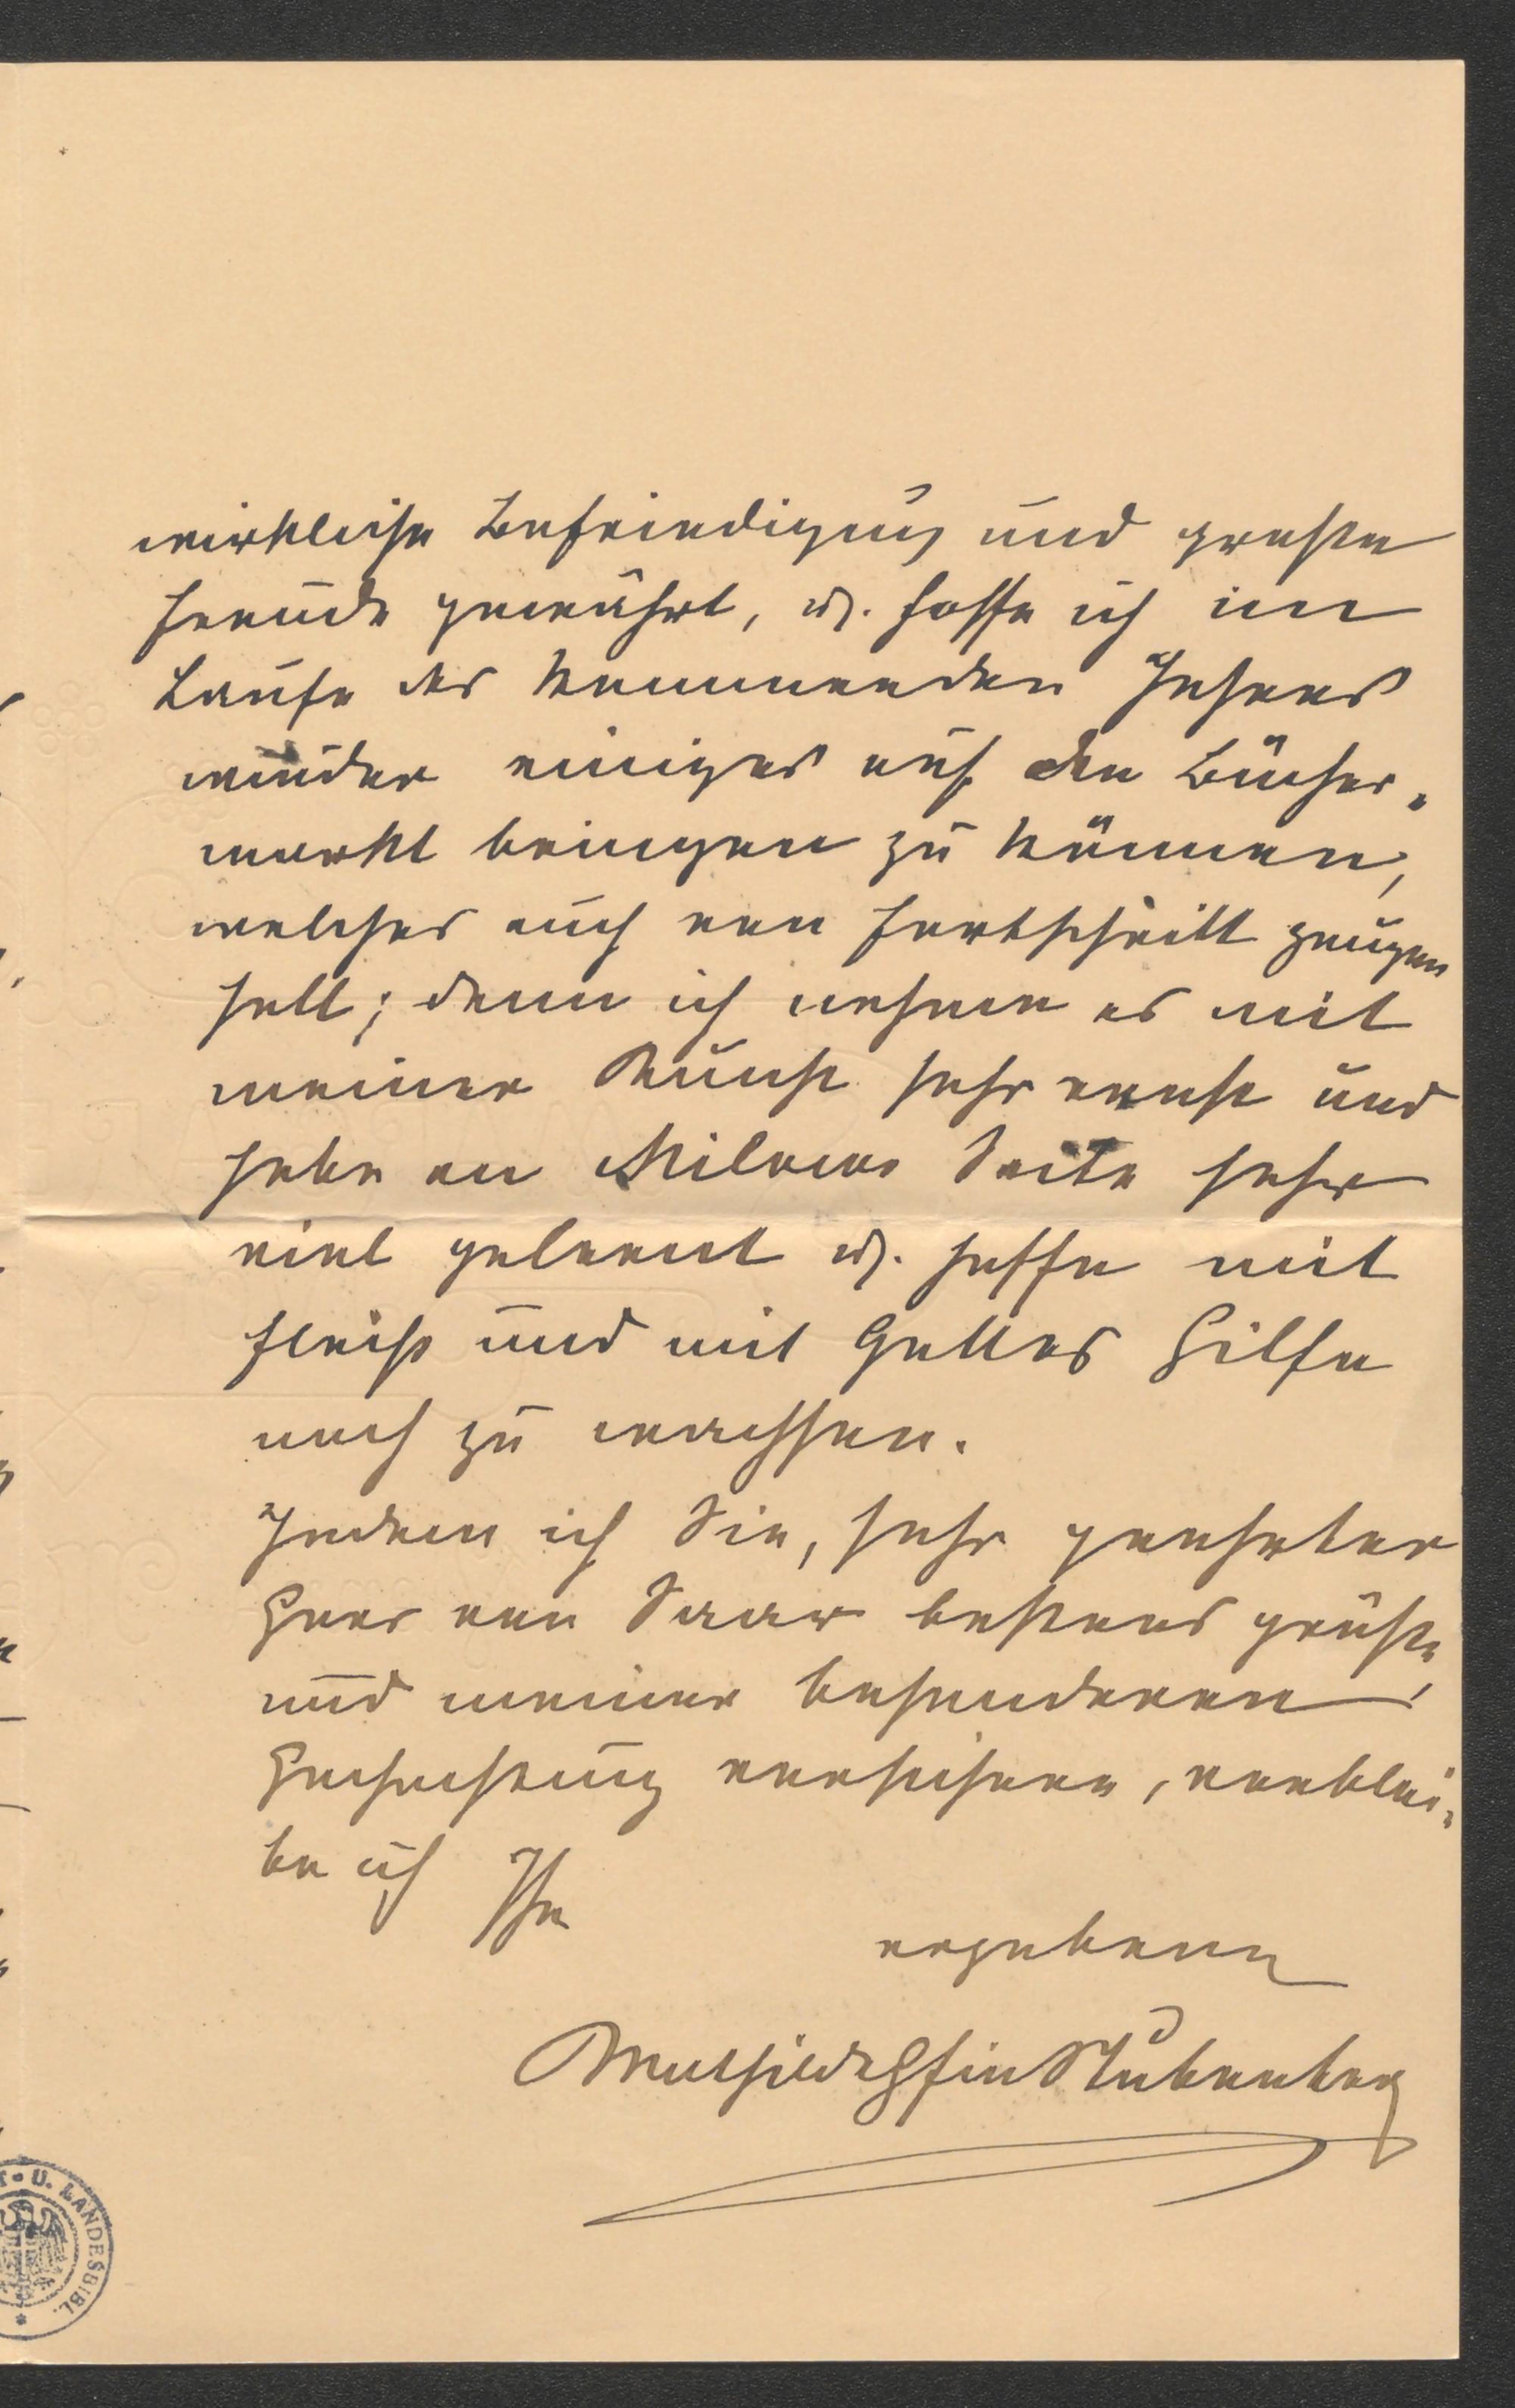 wirkliche Befriedigung und große
Freude gewährt, u. hoffe ich im
Laufe des kommenden Jahres
wieder einiges auf den Bücher-
markt bringen zu können,
welches auch von Fortschritt zeugen
soll; denn ich nehme es mit
meiner Kunst sehr ernst und
habe an Milows Seite sehr
viel gelernt u. hoffe mit
Fleiß und mit Gottes Hilfe
noch zu wachsen.
Indem ich Sie, sehr geehrter
Herr von Saar bestens grüße,
und meiner besonderen
Hochachtung versichere, verblei-
be ich Ihre
ergebene
Mathilde Gfin Stubenberg
U. LANDESBIBL.